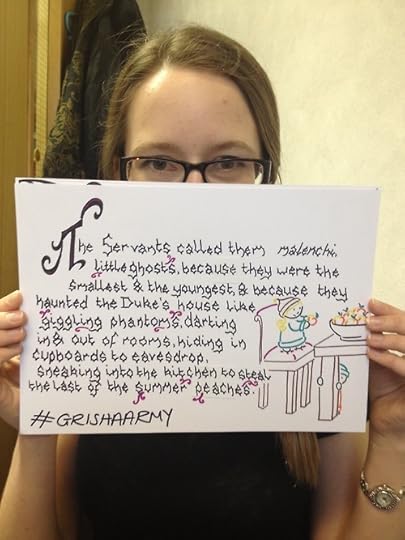 The Servants called them malenchi,
little ghosts, because they were the
smallest & the youngest, & because they
haunted the Duke's house like
giggling phantoms, darting
in & out of rooms, hiding in
cupboards to eavesdrop,
sneaking into the kitchen to steal
the last of the summer peaches.
#GRISHAARMY